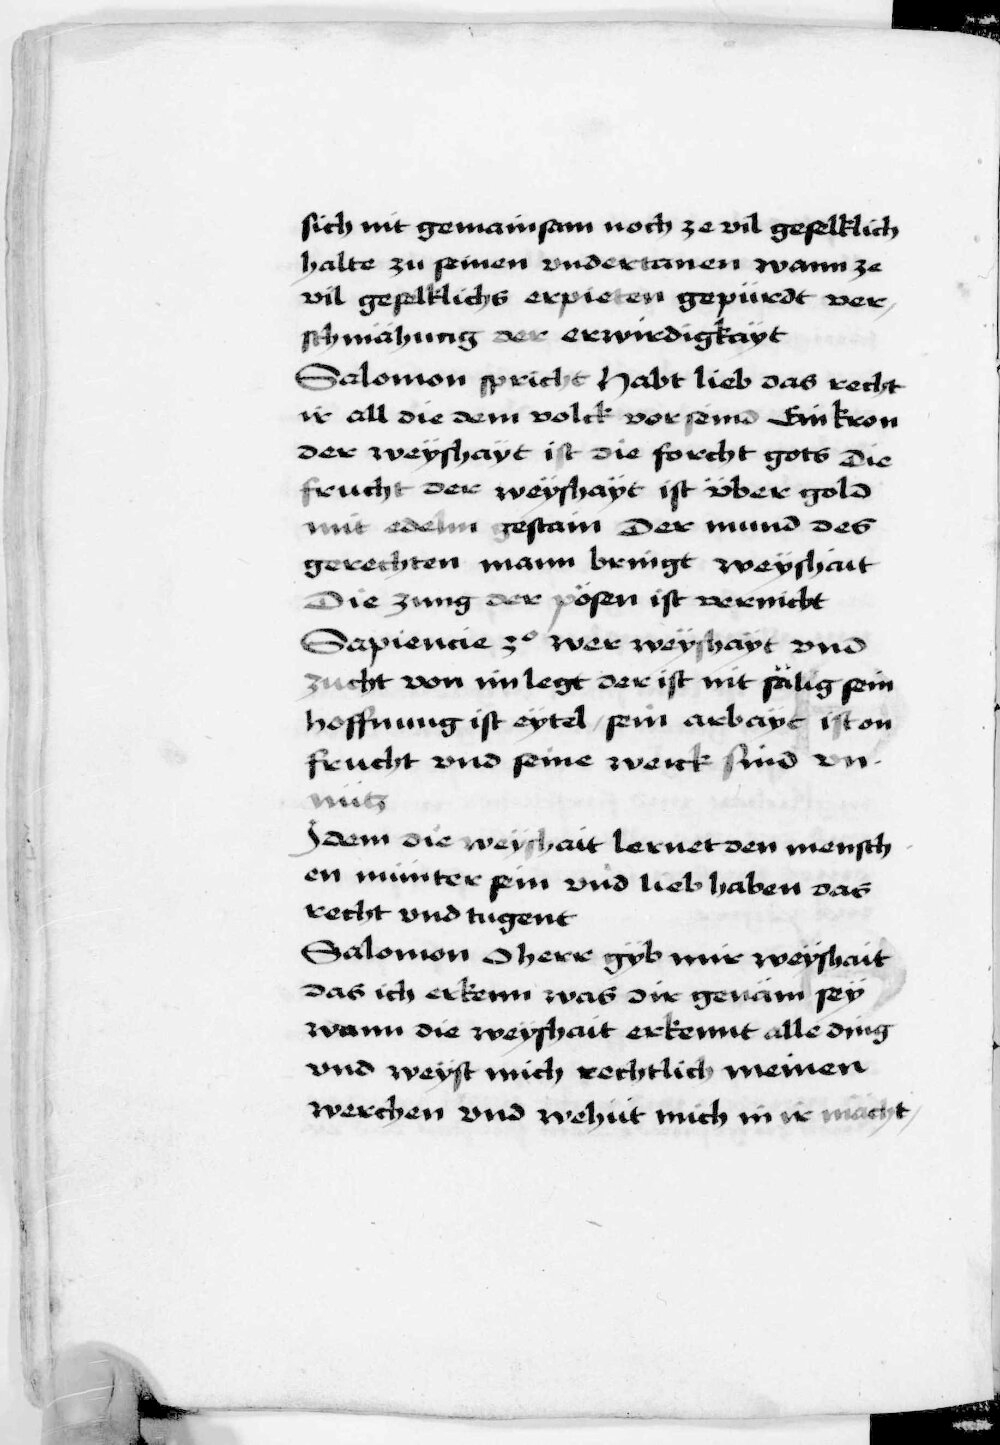 sich nit gemainsam noch ze vil geselklich
halte zu seinen vndertanen wann ze
vil geselklichs erpieten gepürdt ver,
schmähung der erwirdigkayt
Salomon spricht Habt lieb das recht
ir all die dem volck vor seind Ein kron
der weÿshaÿt ist die forcht gots Die
frucht der weÿshaÿt ist über gold
mit edelm gestain Der mund des
gerechten mann bringt weÿshait
Die zung der pösen ist vernicht
Sapiencie 3º wer weÿshaÿt vnd
zucht von im legt der ist nit sälig sein
hoffnung ist eÿtel / sein arbaÿt ist on
frucht vnd seine werck sind vn-
nütz
Jdem die weÿshait lernet den mensch
en münter sein vnd lieb haben das
recht vnd tugent
Salomon O herr gÿb mir weÿshait
das ich erkenn was dir genäm seÿ
wann die weÿshait erkennt alle ding
vnd weÿst mich rechtlich meinen
werchen vnd wehüt mich in ir mácht,